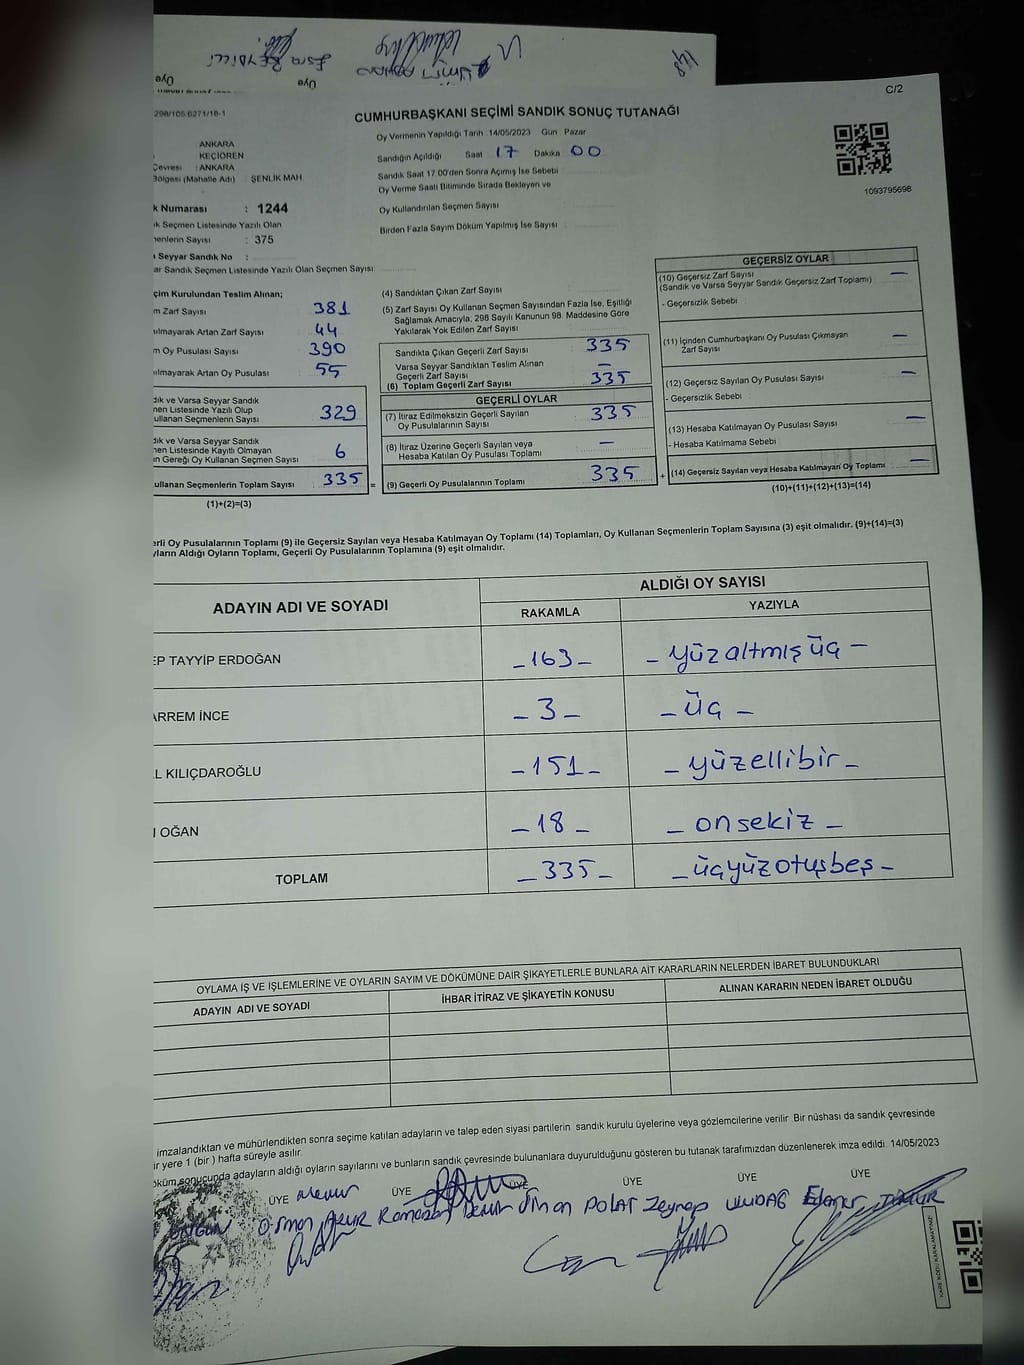 C/2
298/105.6271/18-1
CUMHURBAŞKANI SEÇİMİ SANDIK SONUÇ TUTANAĞI
ANKARA
KEÇİÖREN
Çevresi : ANKARA
Bölgesi (Mahalle Adı) : ŞENLİK MAH.
k Numarası : 1244
ık Seçmen Listesinde Yazılı Olan
nenlerin Sayısı : 375
ı Seyyar Sandık No :
ar Sandık Seçmen Listesinde Yazılı Olan Seçmen Sayısı:
Oy Vermenin Yapıldığı Tarih :14/05/2023 Gün Pazar
Sandığın Açıldığı Saat 17 Dakika 00
Sandık Saat 17.00'den Sonra Açımış İse Sebebi
Oy Verme Saati Bitiminde Sırada Bekleyen ve
Oy Kullandırılan Seçmen Sayısı
Birden Fazla Sayım Döküm Yapılmış İse Sayısı
1093795698
çim Kurulundan Teslim Alınan;
m Zarf Sayısı 381
ılmayarak Artan Zarf Sayısı 44
m Oy Pusulası Sayısı 390
ılmayarak Artan Oy Pusulası 55
dık ve Varsa Seyyar Sandık
nen Listesinde Yazılı Olup
ullanan Seçmenlerin Sayısı 329
dık ve Varsa Seyyar Sandık
nen Listesinde Kayıtlı Olmayan
ın Gereği Oy Kullanan Seçmen Sayısı 6
ullanan Seçmenlerin Toplam Sayısı 335 =
(1)+(2)=(3)
(4) Sandıktan Çıkan Zarf Sayısı
(5) Zarf Sayısı Oy Kullanan Seçmen Sayısından Fazla İse, Eşitliği
Sağlamak Amacıyla, 298 Sayılı Kanunun 98. Maddesine Göre
Yakılarak Yok Edilen Zarf Sayısı
Sandıkta Çıkan Geçerli Zarf Sayısı 335
Varsa Seyyar Sandıktan Teslim Alınan
Geçerli Zarf Sayısı —
(6) Toplam Geçerli Zarf Sayısı 335
GEÇERLİ OYLAR
(7) İtiraz Edilmeksizin Geçerli Sayılan
Oy Pusulalarının Sayısı 335
(8) İtiraz Üzerine Geçerli Sayılan veya
Hesaba Katılan Oy Pusulası Toplamı —
(9) Geçerli Oy Pusulalarının Toplamı 335 +
GEÇERSİZ OYLAR
(10) Geçersiz Zarf Sayısı —
(Sandık ve Varsa Seyyar Sandık Geçersiz Zarf Toplamı)
- Geçersizlik Sebebi
(11) İçinden Cumhurbaşkanı Oy Pusulası Çıkmayan —
Zarf Sayısı
(12) Geçersiz Sayılan Oy Pusulası Sayısı —
- Geçersizlik Sebebi
(13) Hesaba Katılmayan Oy Pusulası Sayısı —
- Hesaba Katılmama Sebebi
(14) Geçersiz Sayılan veya Hesaba Katılmayan Oy Toplamı —
(10)+(11)+(12)+(13)=(14)
erli Oy Pusulalarının Toplamı (9) ile Geçersiz Sayılan veya Hesaba Katılmayan Oy Toplamı (14) Toplamları, Oy Kullanan Seçmenlerin Toplam Sayısına (3) eşit olmalıdır. (9)+(14)=(3)
yların Aldığı Oyların Toplamı, Geçerli Oy Pusulalarının Toplamına (9) eşit olmalıdır.
ADAYIN ADI VE SOYADI
ALDIĞI OY SAYISI
RAKAMLA YAZIYLA
EP TAYYİP ERDOĞAN -163- - yüzaltmışüç -
ARREM İNCE - 3 - - üç -
L KILIÇDAROĞLU -151- - yüzellibir -
I OĞAN - 18 - - onsekiz -
TOPLAM - 335 - - üçyüzotuşbeş -
OYLAMA İŞ VE İŞLEMLERİNE VE OYLARIN SAYIM VE DÖKÜMÜNE DAİR ŞİKAYETLERLE BUNLARA AİT KARARLARIN NELERDEN İBARET BULUNDUKLARI
ADAYIN ADI VE SOYADI İHBAR İTİRAZ VE ŞİKAYETİN KONUSU ALINAN KARARIN NEDEN İBARET OLDUĞU
imzalandıktan ve mühürlendikten sonra seçime katılan adayların ve talep eden siyasi partilerin sandık kurulu üyelerine veya gözlemcilerine verilir. Bir nüshası da sandık çevresinde
ir yere 1 (bir) hafta süreyle asılır.
öküm sonucunda adayların aldığı oyların sayılarını ve bunların sandık çevresinde bulunanlara duyurulduğunu gösteren bu tutanak tarafımızdan düzenlenerek imza edildi. 14/05/2023
ÜYE Memur ÜYE ÜYE ÜYE ÜYE ÜYE
Osman Ramazan Demir Sinan POLAT Zeynep ULUDAĞ TİMUR
KARE KODU KARALAMAYINIZ